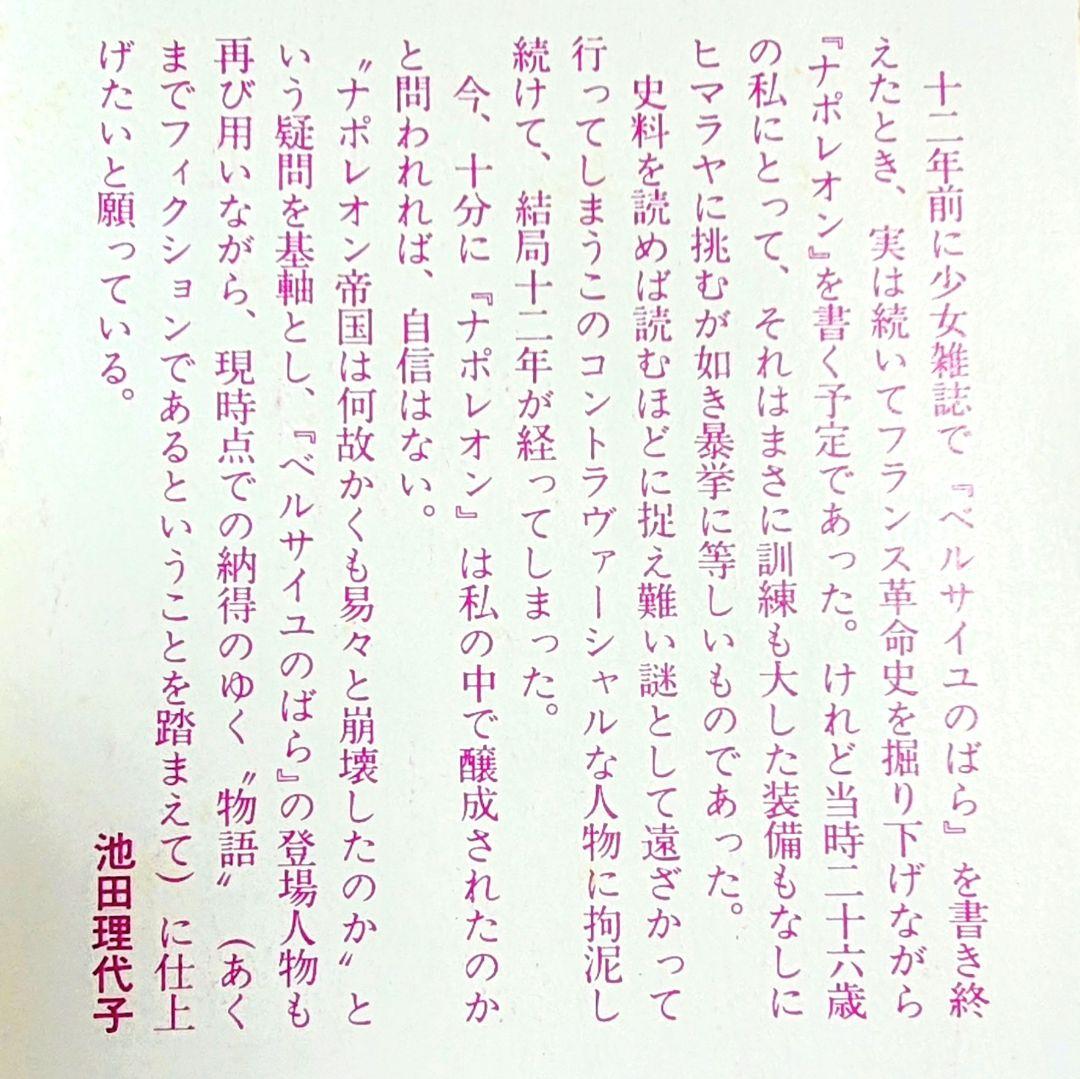 十二年前に少女雑誌で『ベルサイユのばら』を書き終
えたとき、実は続いてフランス革命史を掘り下げながら
『ナポレオン』を書く予定であった。けれど当時二十六歳
の私にとって、それはまさに訓練も大した装備もなしに
ヒマラヤに挑むが如き暴挙に等しいものであった。
史料を読めば読むほどに捉え難い謎として遠ざかって
行ってしまうこのコントラヴァーシャルな人物に拘泥し
続けて、結局十二年が経ってしまった。
今、十分に『ナポレオン』は私の中で醸成されたのか
と問われれば、自信はない。
〝ナポレオン帝国は何故かくも易々と崩壊したのか〟と
いう疑問を基軸とし、『ベルサイユのばら』の登場人物も
再び用いながら、現時点での納得のゆく〝物語〟（あく
までフィクションであるということを踏まえて）に仕上
げたいと願っている。
池田理代子